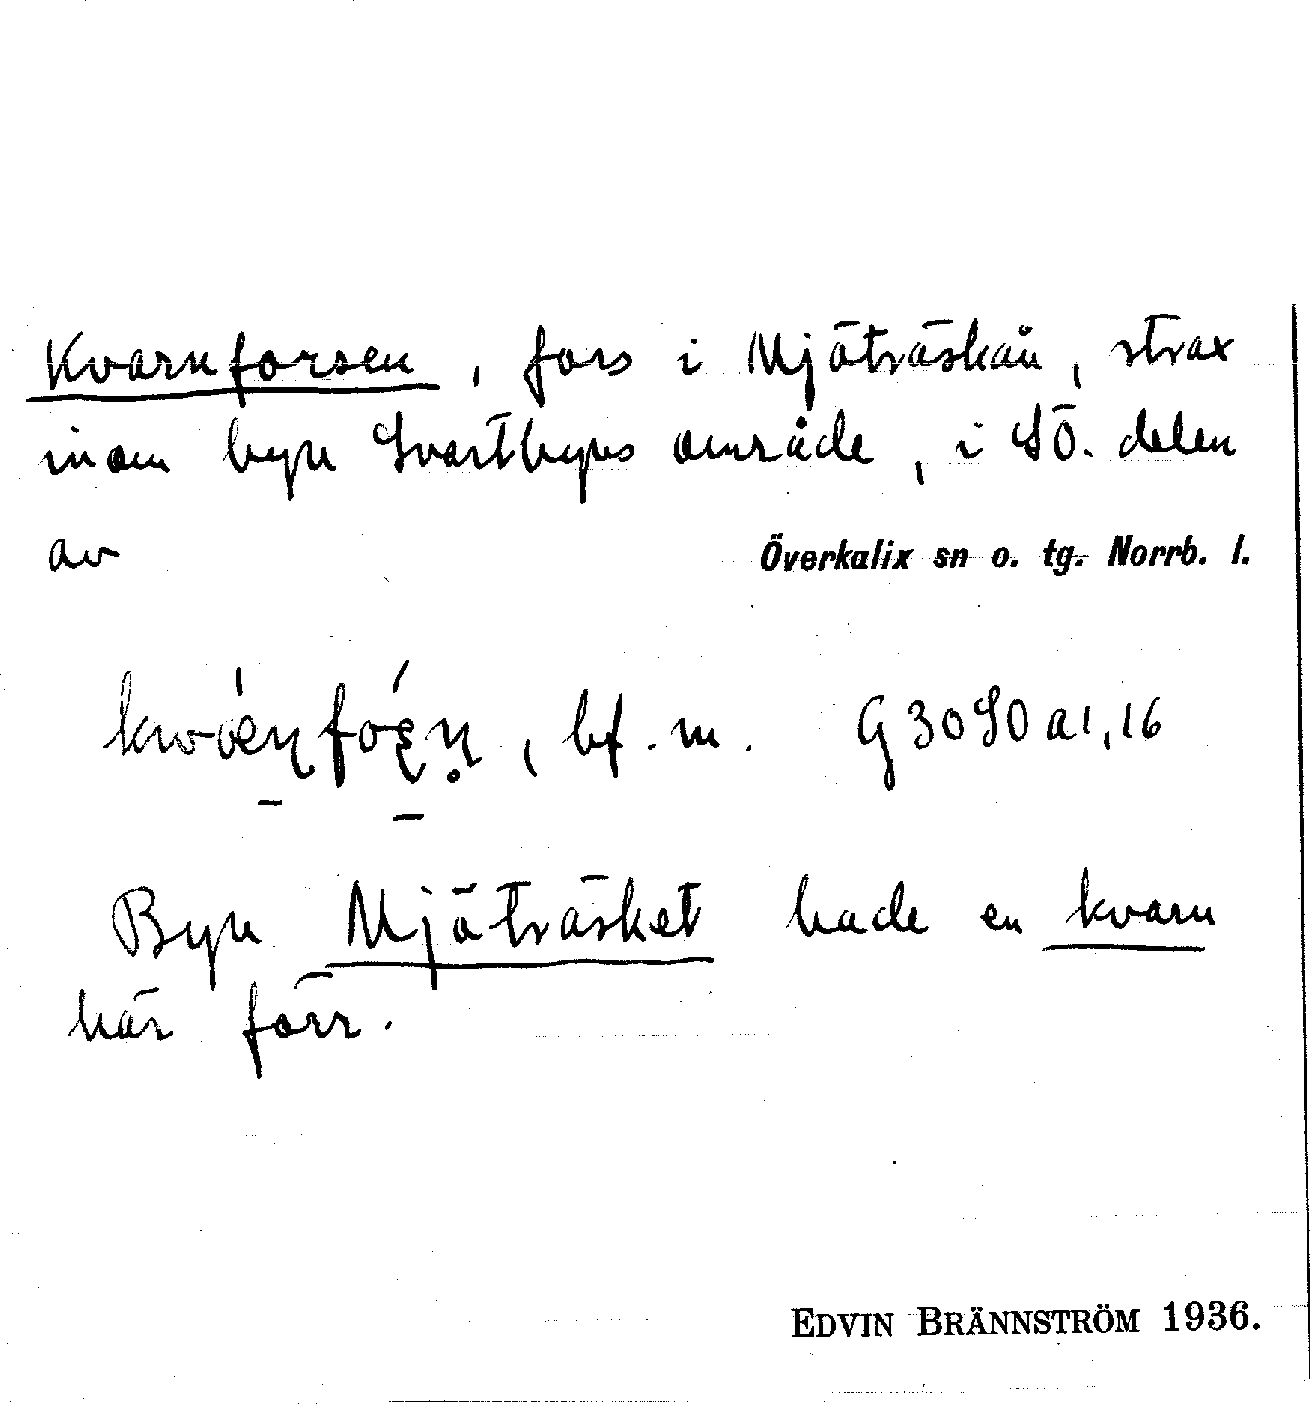 Kvarnforsen, fors i Mjöträskån, strax
inom byn Svartbyns område, i SÖ. delen
av Överkalix sn o. tg. Norrb. l.
, bf. m. G30S0a1,16
Byn Mjöträsket hade en kvarn
här förr.
EDVIN BRÄNNSTRÖM 1936.